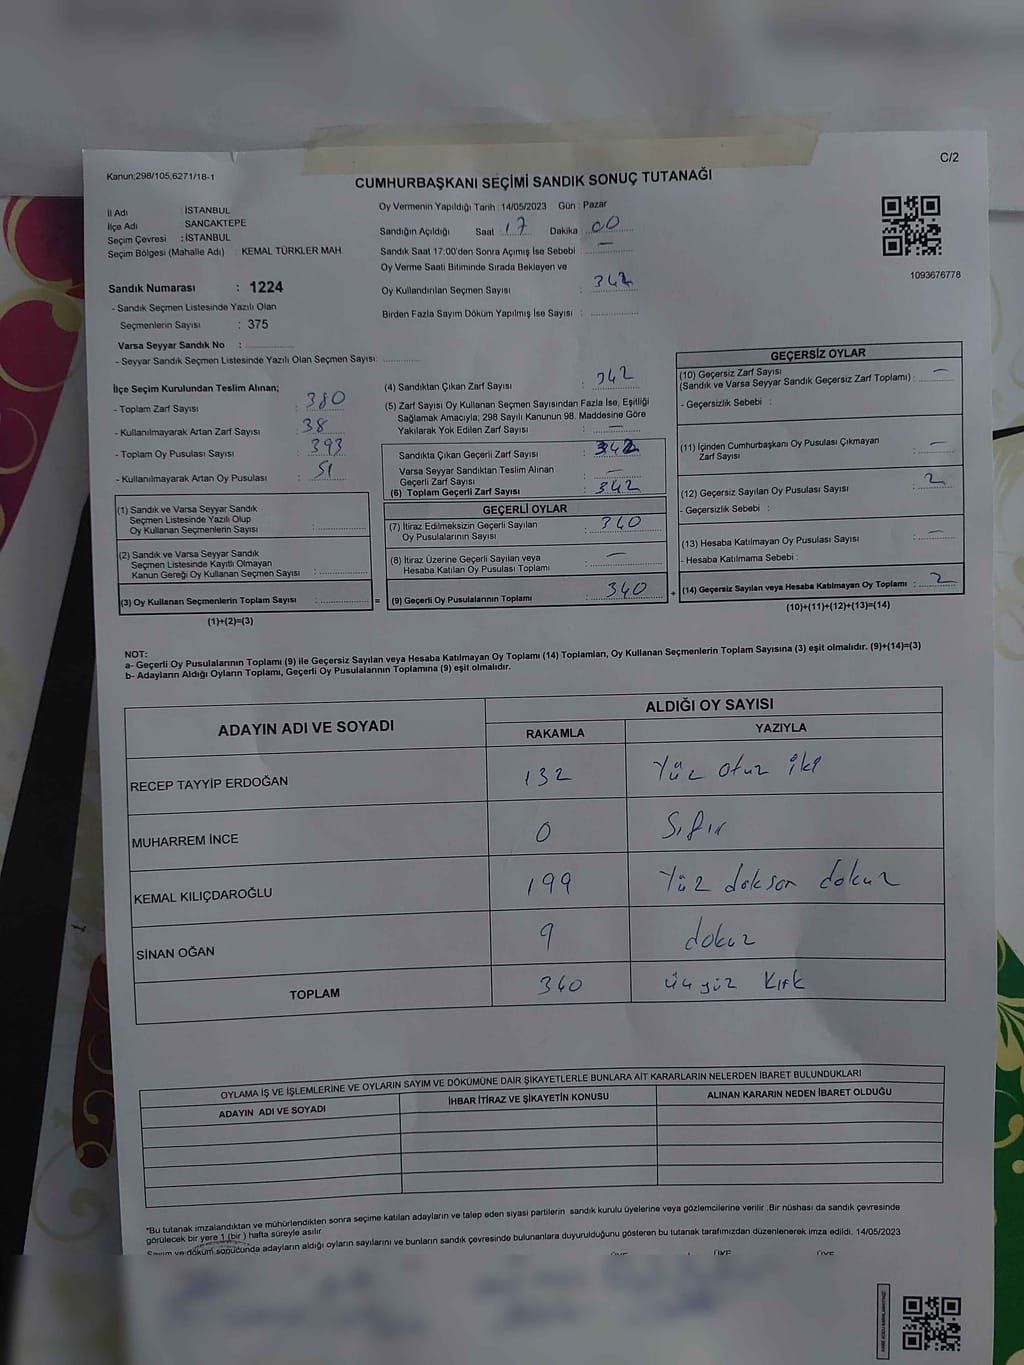 C/2
Kanun;298/105,6271/18-1
CUMHURBAŞKANI SEÇİMİ SANDIK SONUÇ TUTANAĞI
İl Adı : İSTANBUL
İlçe Adı : SANCAKTEPE
Seçim Çevresi : İSTANBUL
Seçim Bölgesi (Mahalle Adı) : KEMAL TÜRKLER MAH.
Oy Vermenin Yapıldığı Tarih : 14/05/2023 Gün : Pazar
Sandığın Açıldığı Saat : 17 Dakika : 00
Sandık Saat 17:00'den Sonra Açımış İse Sebebi : —
Oy Verme Saati Bitiminde Sırada Bekleyen ve
Oy Kullandırılan Seçmen Sayısı : 342
Birden Fazla Sayım Döküm Yapılmış İse Sayısı :
1093676778
Sandık Numarası : 1224
- Sandık Seçmen Listesinde Yazılı Olan
Seçmenlerin Sayısı : 375
Varsa Seyyar Sandık No :
- Seyyar Sandık Seçmen Listesinde Yazılı Olan Seçmen Sayısı:
İlçe Seçim Kurulundan Teslim Alınan;
- Toplam Zarf Sayısı : 380
- Kullanılmayarak Artan Zarf Sayısı : 38
- Toplam Oy Pusulası Sayısı : 393
- Kullanılmayarak Artan Oy Pusulası : 51
(1) Sandık ve Varsa Seyyar Sandık
Seçmen Listesinde Yazılı Olup
Oy Kullanan Seçmenlerin Sayısı :
(2) Sandık ve Varsa Seyyar Sandık
Seçmen Listesinde Kayıtlı Olmayan
Kanun Gereği Oy Kullanan Seçmen Sayısı :
(3) Oy Kullanan Seçmenlerin Toplam Sayısı : =
(1)+(2)=(3)
(4) Sandıktan Çıkan Zarf Sayısı : 342
(5) Zarf Sayısı Oy Kullanan Seçmen Sayısından Fazla İse, Eşitliği
Sağlamak Amacıyla, 298 Sayılı Kanunun 98. Maddesine Göre
Yakılarak Yok Edilen Zarf Sayısı : —
Sandıkta Çıkan Geçerli Zarf Sayısı : 342
Varsa Seyyar Sandıktan Teslim Alınan
Geçerli Zarf Sayısı : —
(6) Toplam Geçerli Zarf Sayısı : 342
GEÇERLİ OYLAR
(7) İtiraz Edilmeksizin Geçerli Sayılan
Oy Pusulalarının Sayısı : 340
(8) İtiraz Üzerine Geçerli Sayılan veya
Hesaba Katılan Oy Pusulası Toplamı : —
(9) Geçerli Oy Pusulalarının Toplamı : 340 +
GEÇERSİZ OYLAR
(10) Geçersiz Zarf Sayısı
(Sandık ve Varsa Seyyar Sandık Geçersiz Zarf Toplamı) : —
- Geçersizlik Sebebi :
(11) İçinden Cumhurbaşkanı Oy Pusulası Çıkmayan
Zarf Sayısı : —
(12) Geçersiz Sayılan Oy Pusulası Sayısı : 2
- Geçersizlik Sebebi :
(13) Hesaba Katılmayan Oy Pusulası Sayısı : —
- Hesaba Katılmama Sebebi :
(14) Geçersiz Sayılan veya Hesaba Katılmayan Oy Toplamı : 2
(10)+(11)+(12)+(13)=(14)
NOT:
a- Geçerli Oy Pusulalarının Toplamı (9) ile Geçersiz Sayılan veya Hesaba Katılmayan Oy Toplamı (14) Toplamları, Oy Kullanan Seçmenlerin Toplam Sayısına (3) eşit olmalıdır. (9)+(14)=(3)
b- Adayların Aldığı Oyların Toplamı, Geçerli Oy Pusulalarının Toplamına (9) eşit olmalıdır.
ADAYIN ADI VE SOYADI ALDIĞI OY SAYISI
RAKAMLA YAZIYLA
RECEP TAYYİP ERDOĞAN 132 Yüz otuz iki
MUHARREM İNCE 0 Sıfır
KEMAL KILIÇDAROĞLU 199 Yüz doksan dokuz
SİNAN OĞAN 9 dokuz
TOPLAM 340 üçyüz kırk
OYLAMA İŞ VE İŞLEMLERİNE VE OYLARIN SAYIM VE DÖKÜMÜNE DAİR ŞİKAYETLERLE BUNLARA AİT KARARLARIN NELERDEN İBARET BULUNDUKLARI
ADAYIN ADI VE SOYADI İHBAR İTİRAZ VE ŞİKAYETİN KONUSU ALINAN KARARIN NEDEN İBARET OLDUĞU
*Bu tutanak imzalandıktan ve mühürlendikten sonra seçime katılan adayların ve talep eden siyasi partilerin sandık kurulu üyelerine veya gözlemcilerine verilir .Bir nüshası da sandık çevresinde
görülecek bir yere 1 (bir ) hafta süreyle asılır
Sayım ve döküm sonucunda adayların aldığı oyların sayılarını ve bunların sandık çevresinde bulunanlara duyurulduğunu gösteren bu tutanak tarafımızdan düzenlenerek imza edildi. 14/05/2023
ÜYE ÜYE ÜYE